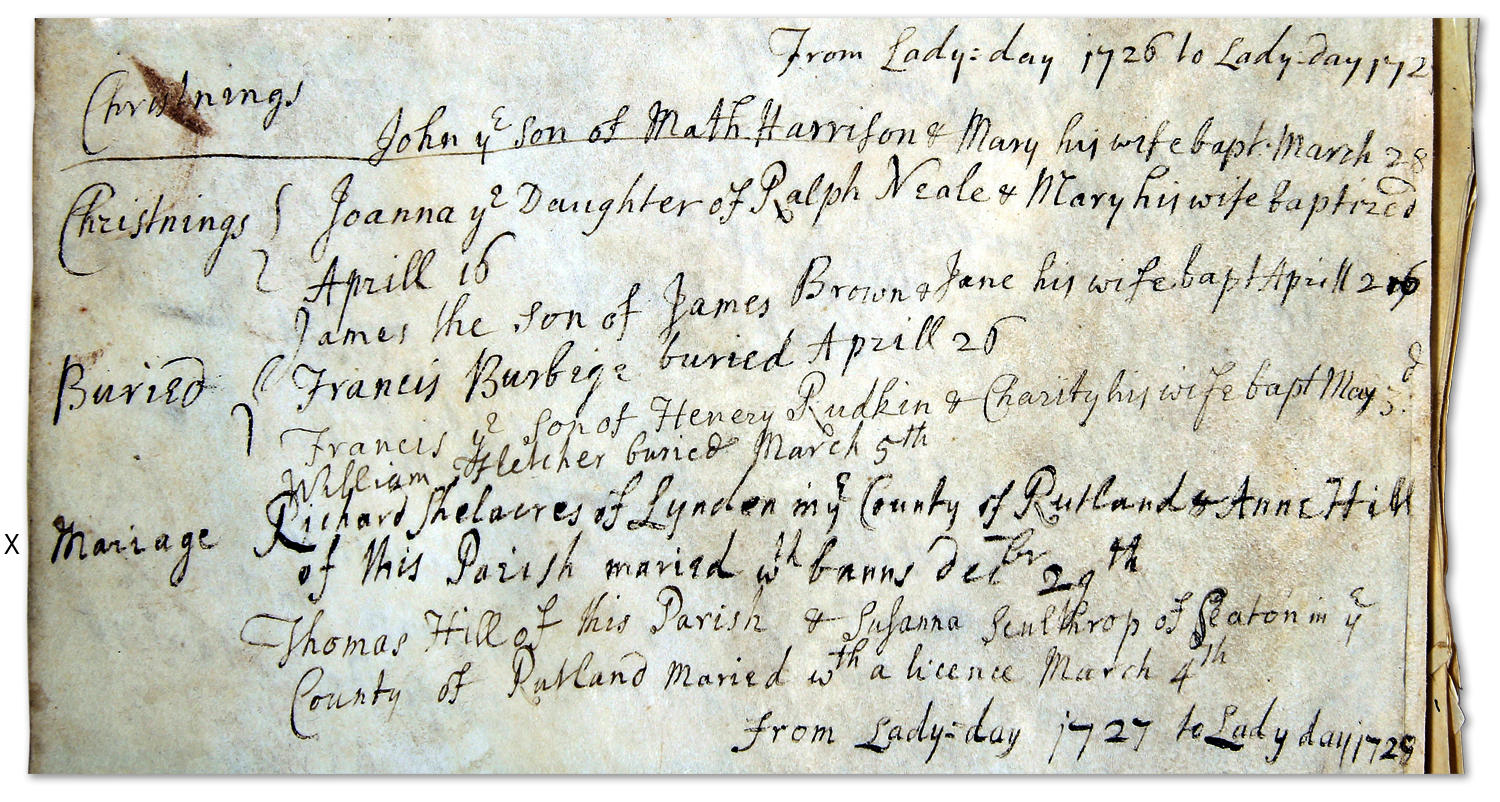 From Lady=day 1726 to Lady-day 172
Christnings
John yͤ son of Math Harrison & Mary his wife bapt. March 28
Christnings Joanna yͤ Daughter of Ralph Neale & Mary his wife baptized
Aprill 16
James the son of James Brown & Jane his wife bapt Aprill
Buried Francis Burbige buried Aprill 26
Francis yͤ son of Henery Rudkin & Charity his wife bapt May 3ᵈ
William Fletcher buried March 5th
Richard Shelacres of Lynden in yͤ County of Rutland & Anne Hill
X Mariage
of this Parish maried wth banns decbr 29th
Thomas Hill of this Parish & Susanna Sculthrop of Seaton in yͤ
County of Rutland Maried wth a licence March 4th
from Lady=day 1727 to Lady day 1728